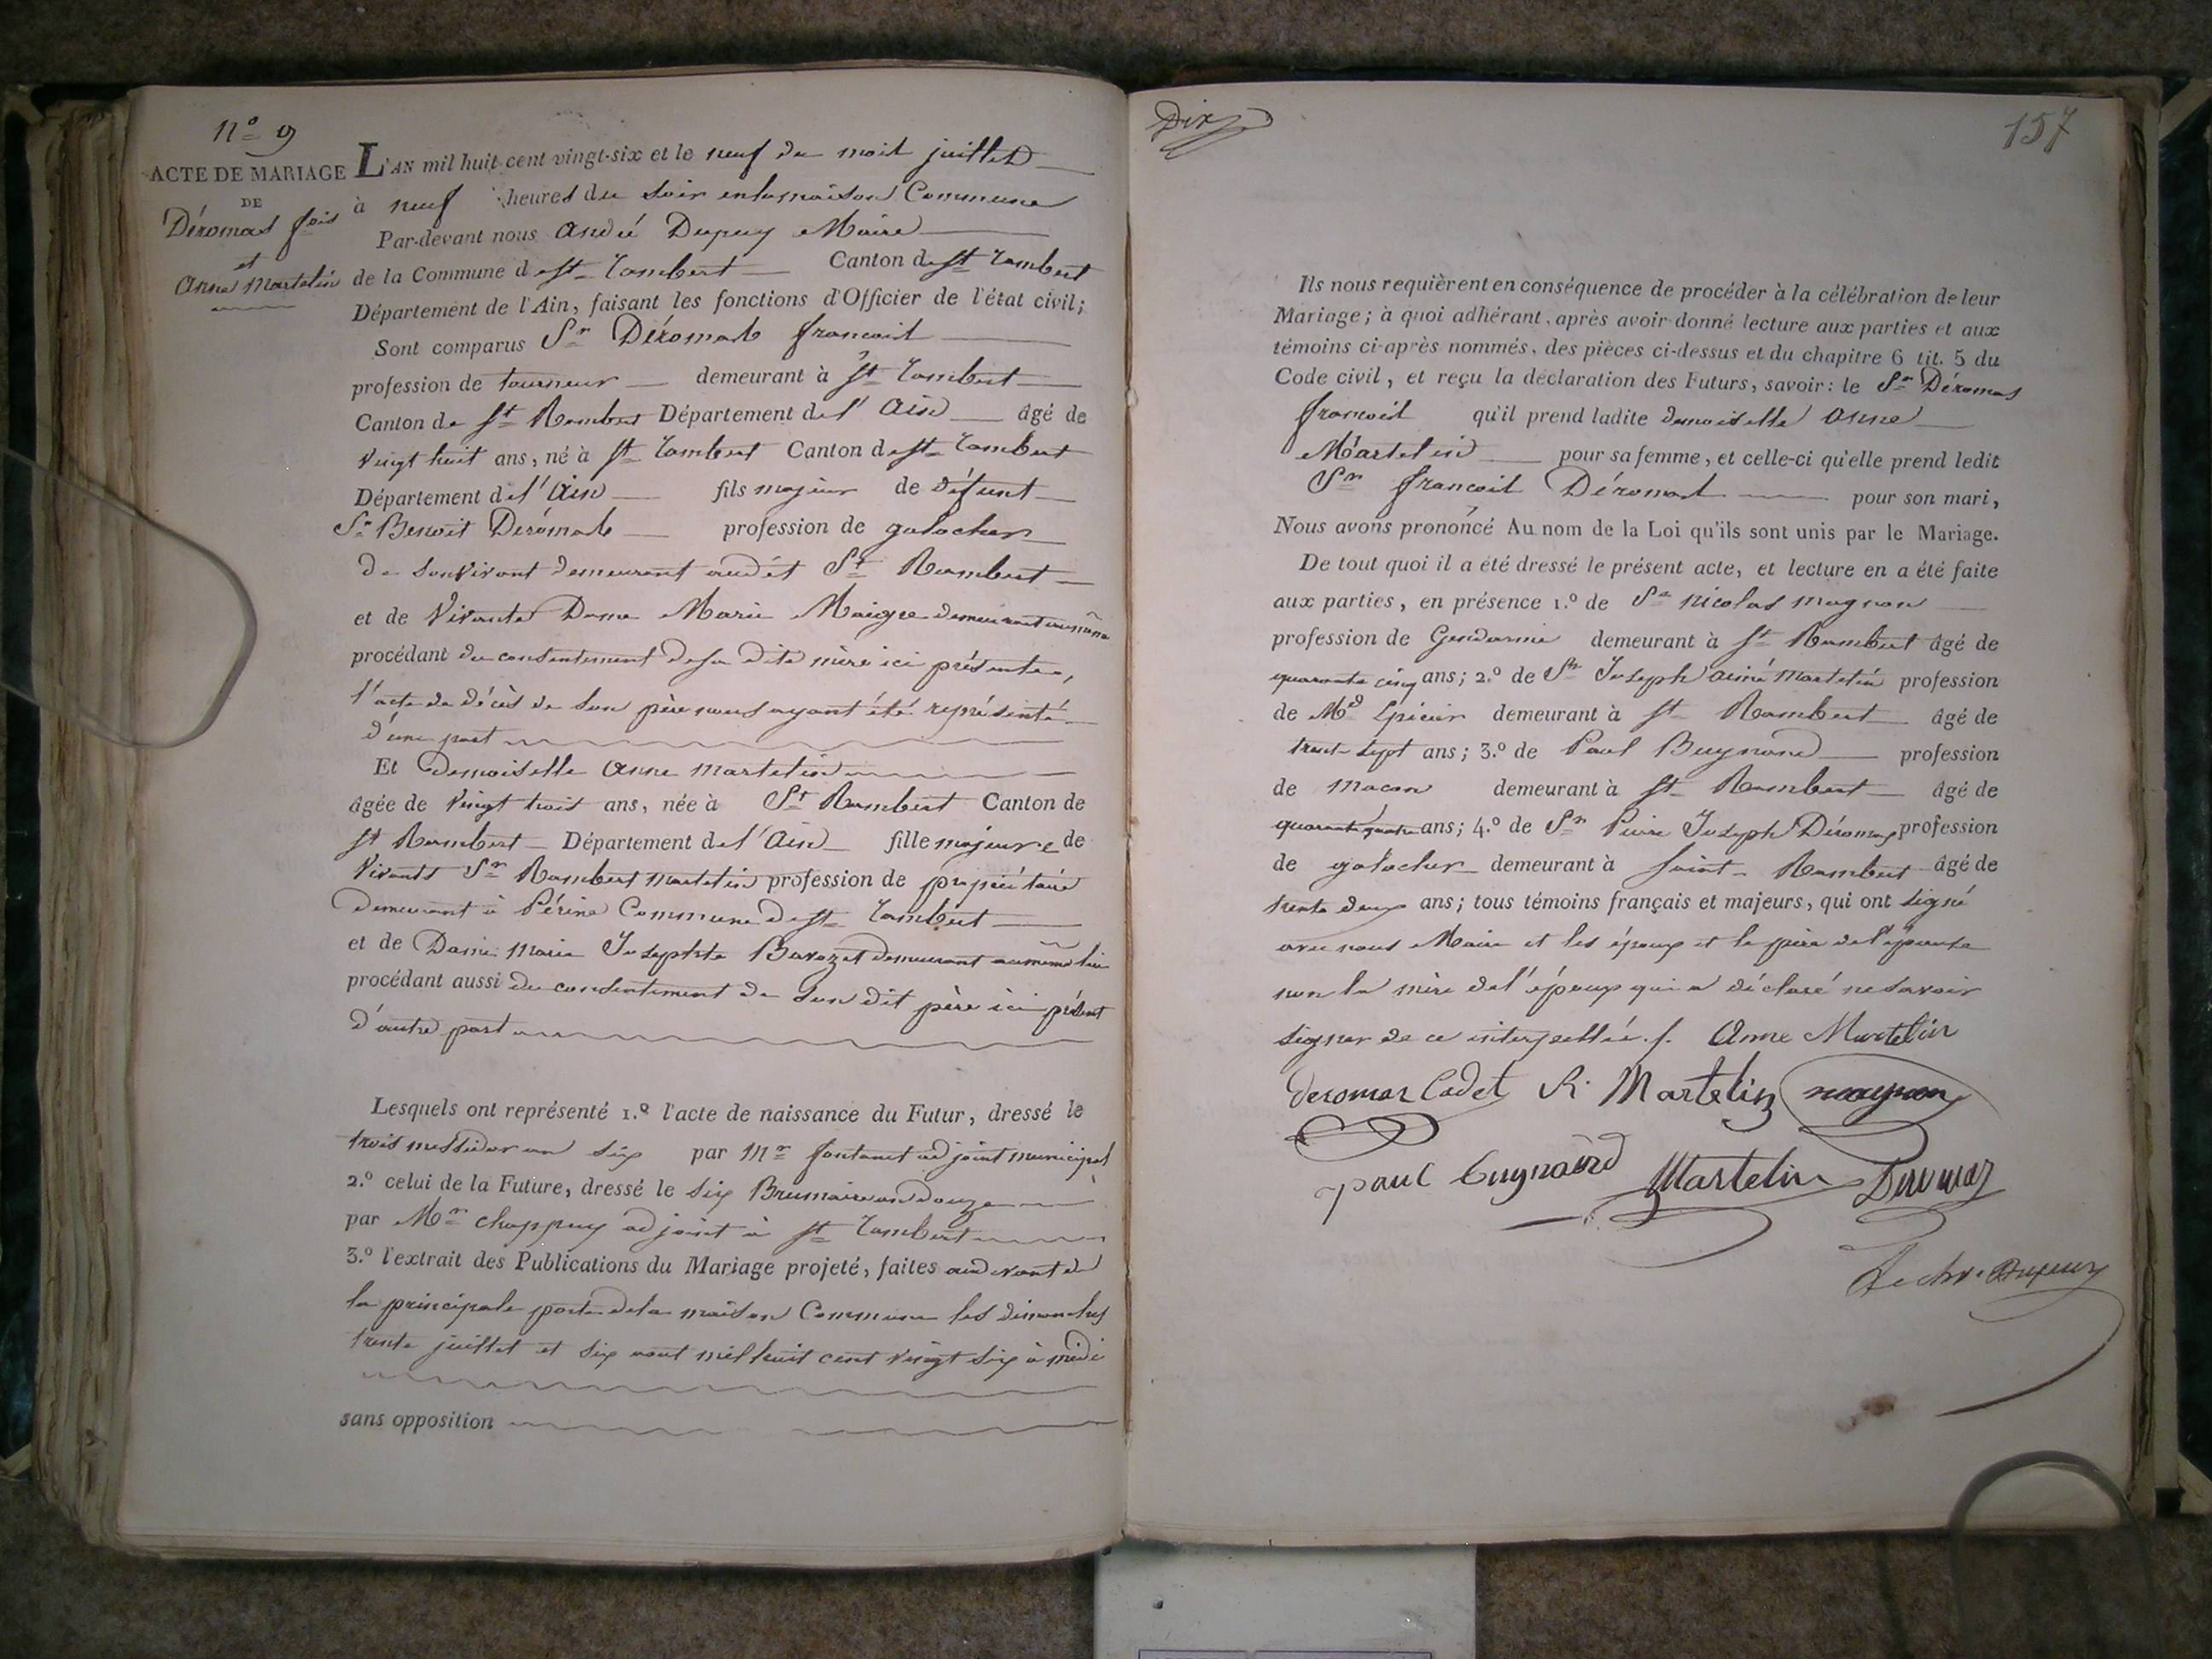 n.º 9
ACTE DE MARIAGE
DE
Déromas fois
et
Anne Martelin
L'AN mil huit cent vingt-six et le neuf du mois juillet
à neuf heures du soir en la maison Commune
Par-devant nous André Dupuy Maire
de la Commune de St Rambert Canton de St Rambert
Département de l'Ain, faisant les fonctions d'Officier de l'état civil;
Sont comparus Sr Déromas françois
profession de tourneur demeurant à St Rambert
Canton de St Rambert Département de l'Ain âgé de
vingt huit ans, né à St Rambert Canton de St Rambert
Département de l'Ain fils majeur de défunt
Sr Benoit Déromas profession de galocher
de son vivant demeurant audit St Rambert
et de vivante Dame Marie Maigre demeurant au même
procédant du consentement de sa dite mère ici présente,
l'acte de décès de son père nous ayant été représenté
d'une part
Et demoiselle Anne Martelin
âgée de vingt trois ans, née à St Rambert Canton de
St Rambert Département de l'Ain fille majeure de
vivants Sr Rambert Martelin profession de propriétaire
demeurant à Périne Commune de St Rambert
et de Dame Marie Josephte Bavozet demeurant au même lieu
procédant aussi du consentement de son dit père ici présent
d'autre part
Lesquels ont représenté 1.º l'acte de naissance du Futur, dressé le
trois messidor an six par Mr fontanet adjoint municipal
2.º celui de la Future, dressé le six Brumaire an douze
par Mr Chappuy adjoint à St Rambert
3.º l'extrait des Publications du Mariage projeté, faites au devant de
la principale porte de la maison Commune les dimanches
trente juillet et six aout mil huit cent vingt six à midi
sans opposition
Dix
157
Ils nous requièrent en conséquence de procéder à la célébration de leur
Mariage; à quoi adhérant, après avoir donné lecture aux parties et aux
témoins ci-après nommés, des pièces ci-dessus et du chapitre 6 tit. 5 du
Code civil, et reçu la déclaration des Futurs, savoir: le Sr Déromas
françois qu'il prend ladite demoiselle Anne
Martelin pour sa femme, et celle-ci qu'elle prend ledit
Sr françois Déromas pour son mari,
Nous avons prononcé Au nom de la Loi qu'ils sont unis par le Mariage.
De tout quoi il a été dressé le présent acte, et lecture en a été faite
aux parties, en présence 1.º de Sr Nicolas Magnon
profession de Gendarme demeurant à St Rambert âgé de
quarante cinq ans; 2.º de Sr Joseph Aimé Martelin profession
de Md Epicier demeurant à St Rambert âgé de
trente sept ans; 3.º de Paul Buynand profession
de macon demeurant à St Rambert âgé de
quarante quatre ans; 4.º de Sr Pierre Joseph Déromas profession
de galocher demeurant à Saint Rambert âgé de
trente deux ans; tous témoins français et majeurs, qui ont signé
avec nous Maire et les époux et le père de l'épouse
non la mère de l'époux qui a déclaré ne savoir
signer de ce interpellée. /. Anne Martelin
deromas Cadet R. Martelin magnon
paul Bugnand Martelin Deromas
Le chr. Dupuy